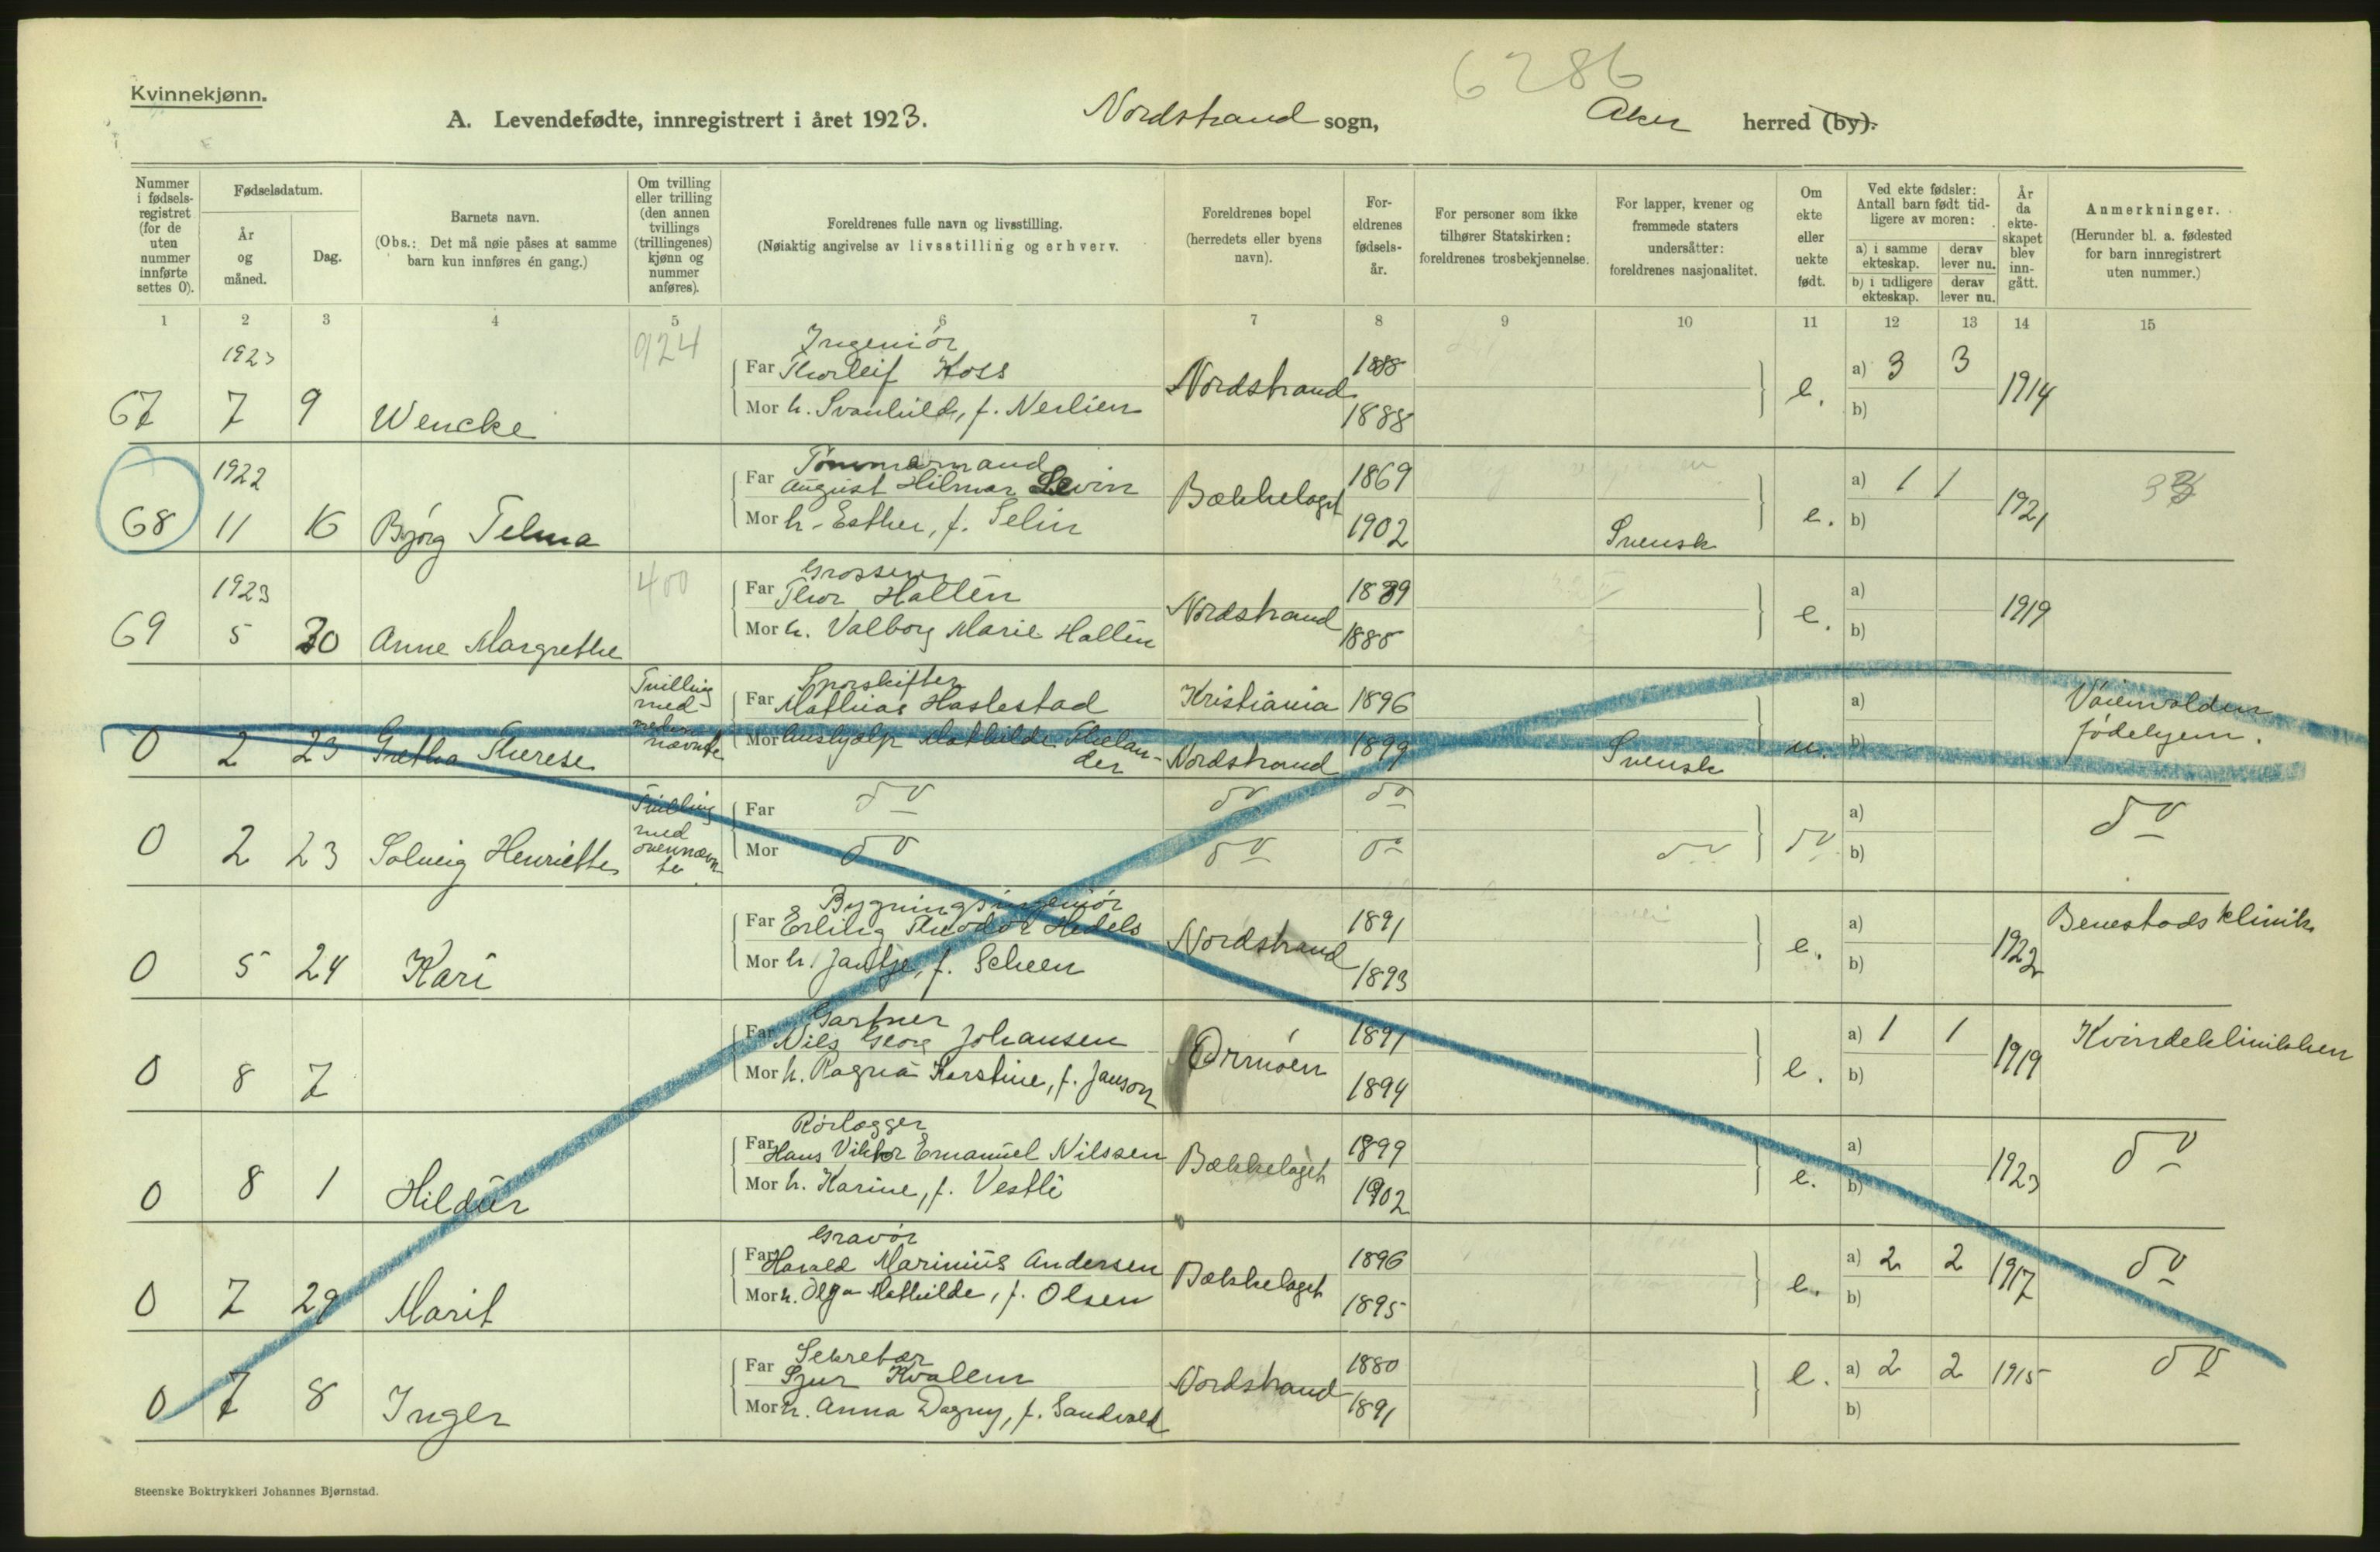 6286
Kvinnekjønn.
A. Levendefødte, innregistrert i året 1923. Nordstrand sogn, Aker herred (by).
Nummer i fødsels-registret (for de uten nummer innførte settes 0).
Fødselsdatum.
År og måned.
Dag.
Barnets navn.
(Obs.: Det må nøie påses at samme barn kun innføres én gang.)
Om tvilling eller trilling (den annen tvillings (trillingenes) kjønn og nummer anføres).
Foreldrenes fulle navn og livsstilling.
(Nøiaktig angivelse av livsstilling og erhverv.
Foreldrenes bopel (herredets eller byens navn).
For-eldrenes fødsels-år.
For personer som ikke tilhører Statskirken: foreldrenes trosbekjennelse.
For lapper, kvener og fremmede staters undersåtter: foreldrenes nasjonalitet.
Om ekte eller uekte født.
Ved ekte fødsler: Antall barn født tid-ligere av moren:
a) i samme ekteskap.
derav lever nu.
b) i tidligere ekteskap.
derav lever nu.
År da ekte-skapet blev inn-gått.
Anmerkninger.
(Herunder bl. a. fødested for barn innregistrert uten nummer.)
1 2 3 4 5 6 7 8 9 10 11 12 13 14 15
1923 924 Ingeniør
Far Thorleif Koss 1888 a) 3 3
67 7 9 Wencke Mor h. Svanhild, f. Nerlien Nordstrand 1888 e. b) 1914
1922 Tømmermand
Far August Hilmar Levin 1869 a) 1 1
68 11 16 Bjørg Telma Mor h. Esther, f. Selin Bækkelaget 1902 Svensk e. b) 1921
1923 400 Grosserer
Far Thor Hallén 1889 a)
69 5 30 Anne Margrethe Mor h. Valborg Marie Hallén Nordstrand 1885 e. b) 1919
Tvilling med nedennævnte Sporskifter
Far Mathias Haslestad Kristiania 1896 a)
0 2 23 Gretha Therese Mor Hushjælp Mathilde Thelander Nordstrand 1899 Svensk u. b) fødehjem.
Tvilling med ovennævnte
Far do do do a) do
0 2 23 Solveig Henriette Mor do do do do do b)
Bygningsingeniør
Far Erling Theodor Hedels 1891 a) Benestads klinik
0 5 24 Kari Mor h. Jantje, f. Scheen Nordstrand 1893 e. b) 1922
Gartner
Far Nils Georg Johansen 1891 a) 1 1 Kvindeklinikken
0 8 7 Mor h. Ragna Karstine, f. Janson Ormøen 1894 e. b) 1919
Rørlægger
Far Hans Viktor Emanuel Nilssen 1899 a) do
0 8 1 Hildur Mor h. Karine, f. Vestli Bækkelaget 1902 e. b) 1923
Gravør
Far Harald Marinius Andersen 1896 a) 2 2 do
0 7 29 Marit Mor h. Olga Mathilde, f. Olsen Bækkelaget 1895 e. b) 1917
Sekretær
Far Sjur Kvalem 1880 a) 2 2 do
0 7 8 Inger Mor h. Anna Dagny, f. Sandvold Nordstrand 1891 e. b) 1915
Steenske Boktrykkeri Johannes Bjørnstad.